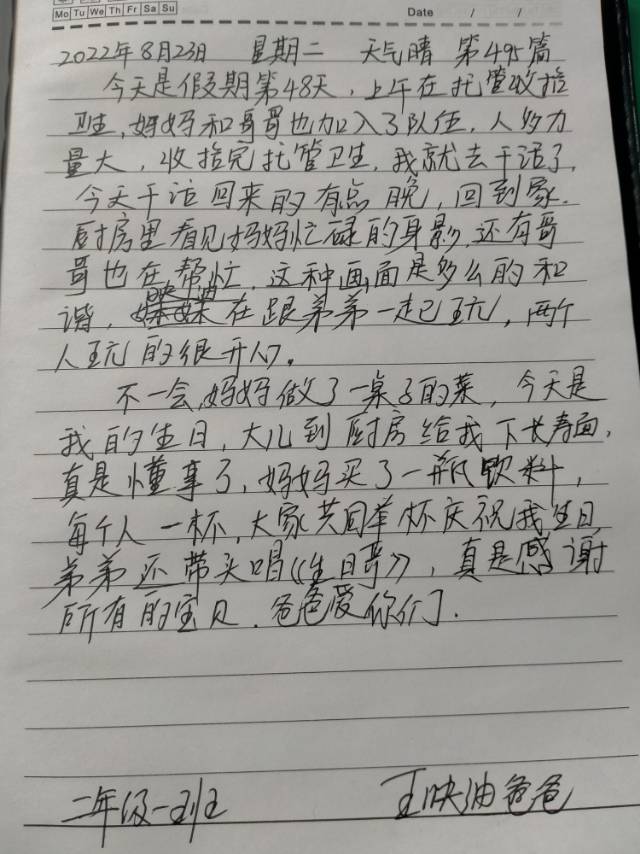 Mo Tu We Th Fr Sa Su
Date / /
2022年8月23日 星期二 天气晴 第495篇
今天是假期第48天，上午在托管收拾
卫生，妈妈和哥哥也加入了队伍，人多力
量大，收拾完托管卫生，我就去干活了，
今天干活回来的有点晚，回到家，
厨房里看见妈妈忙碌的身影，还有哥
哥也在帮忙，这种画面是多么的和
谐，在跟弟弟一起玩，两个
人玩的很开心。
不一会，妈妈做了一桌子的菜，今天是
我的生日，大儿到厨房给我下长寿面，
真是懂事了，妈妈买了一瓶饮料，
每个人一杯，大家共同举杯庆祝我生日，
弟弟还带头唱《生日哥》，真是感谢
所有的宝贝，爸爸爱你们。
二年级一班 王映油爸爸